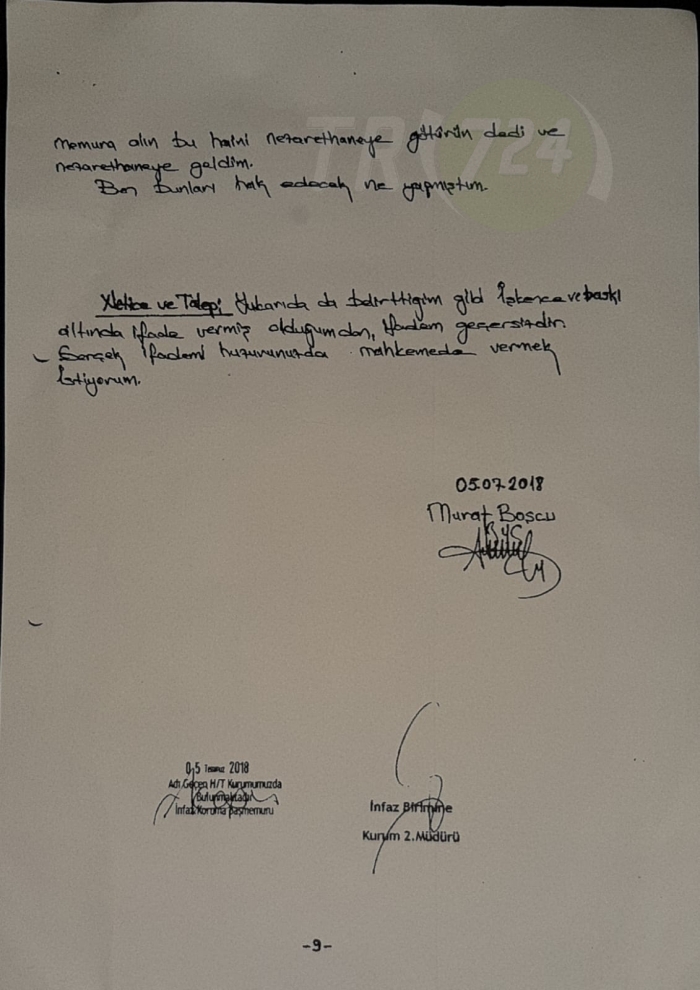 TR724
memura alın bu haini nezarethaneye götürün dedi ve
nezarethaneye geldim.
Ben bunları hak edecek ne yapmıştım.
Netice ve Talep; Yukarıda da belirttiğim gibi İşkence ve baskı
altında ifade vermiş olduğumdan, ifadem geçersizdir.
Gerçek ifademi huzurunuzda mahkemede vermek
İstiyorum.
05.07.2018
Murat Boscu
0,5 Temmuz 2018
Adı Geçen H/T Kurumumuzda
Bulunmaktadır
İnfaz Koruma Başmemuru
İnfaz Birimine
Kurum 2.Müdürü
-9-